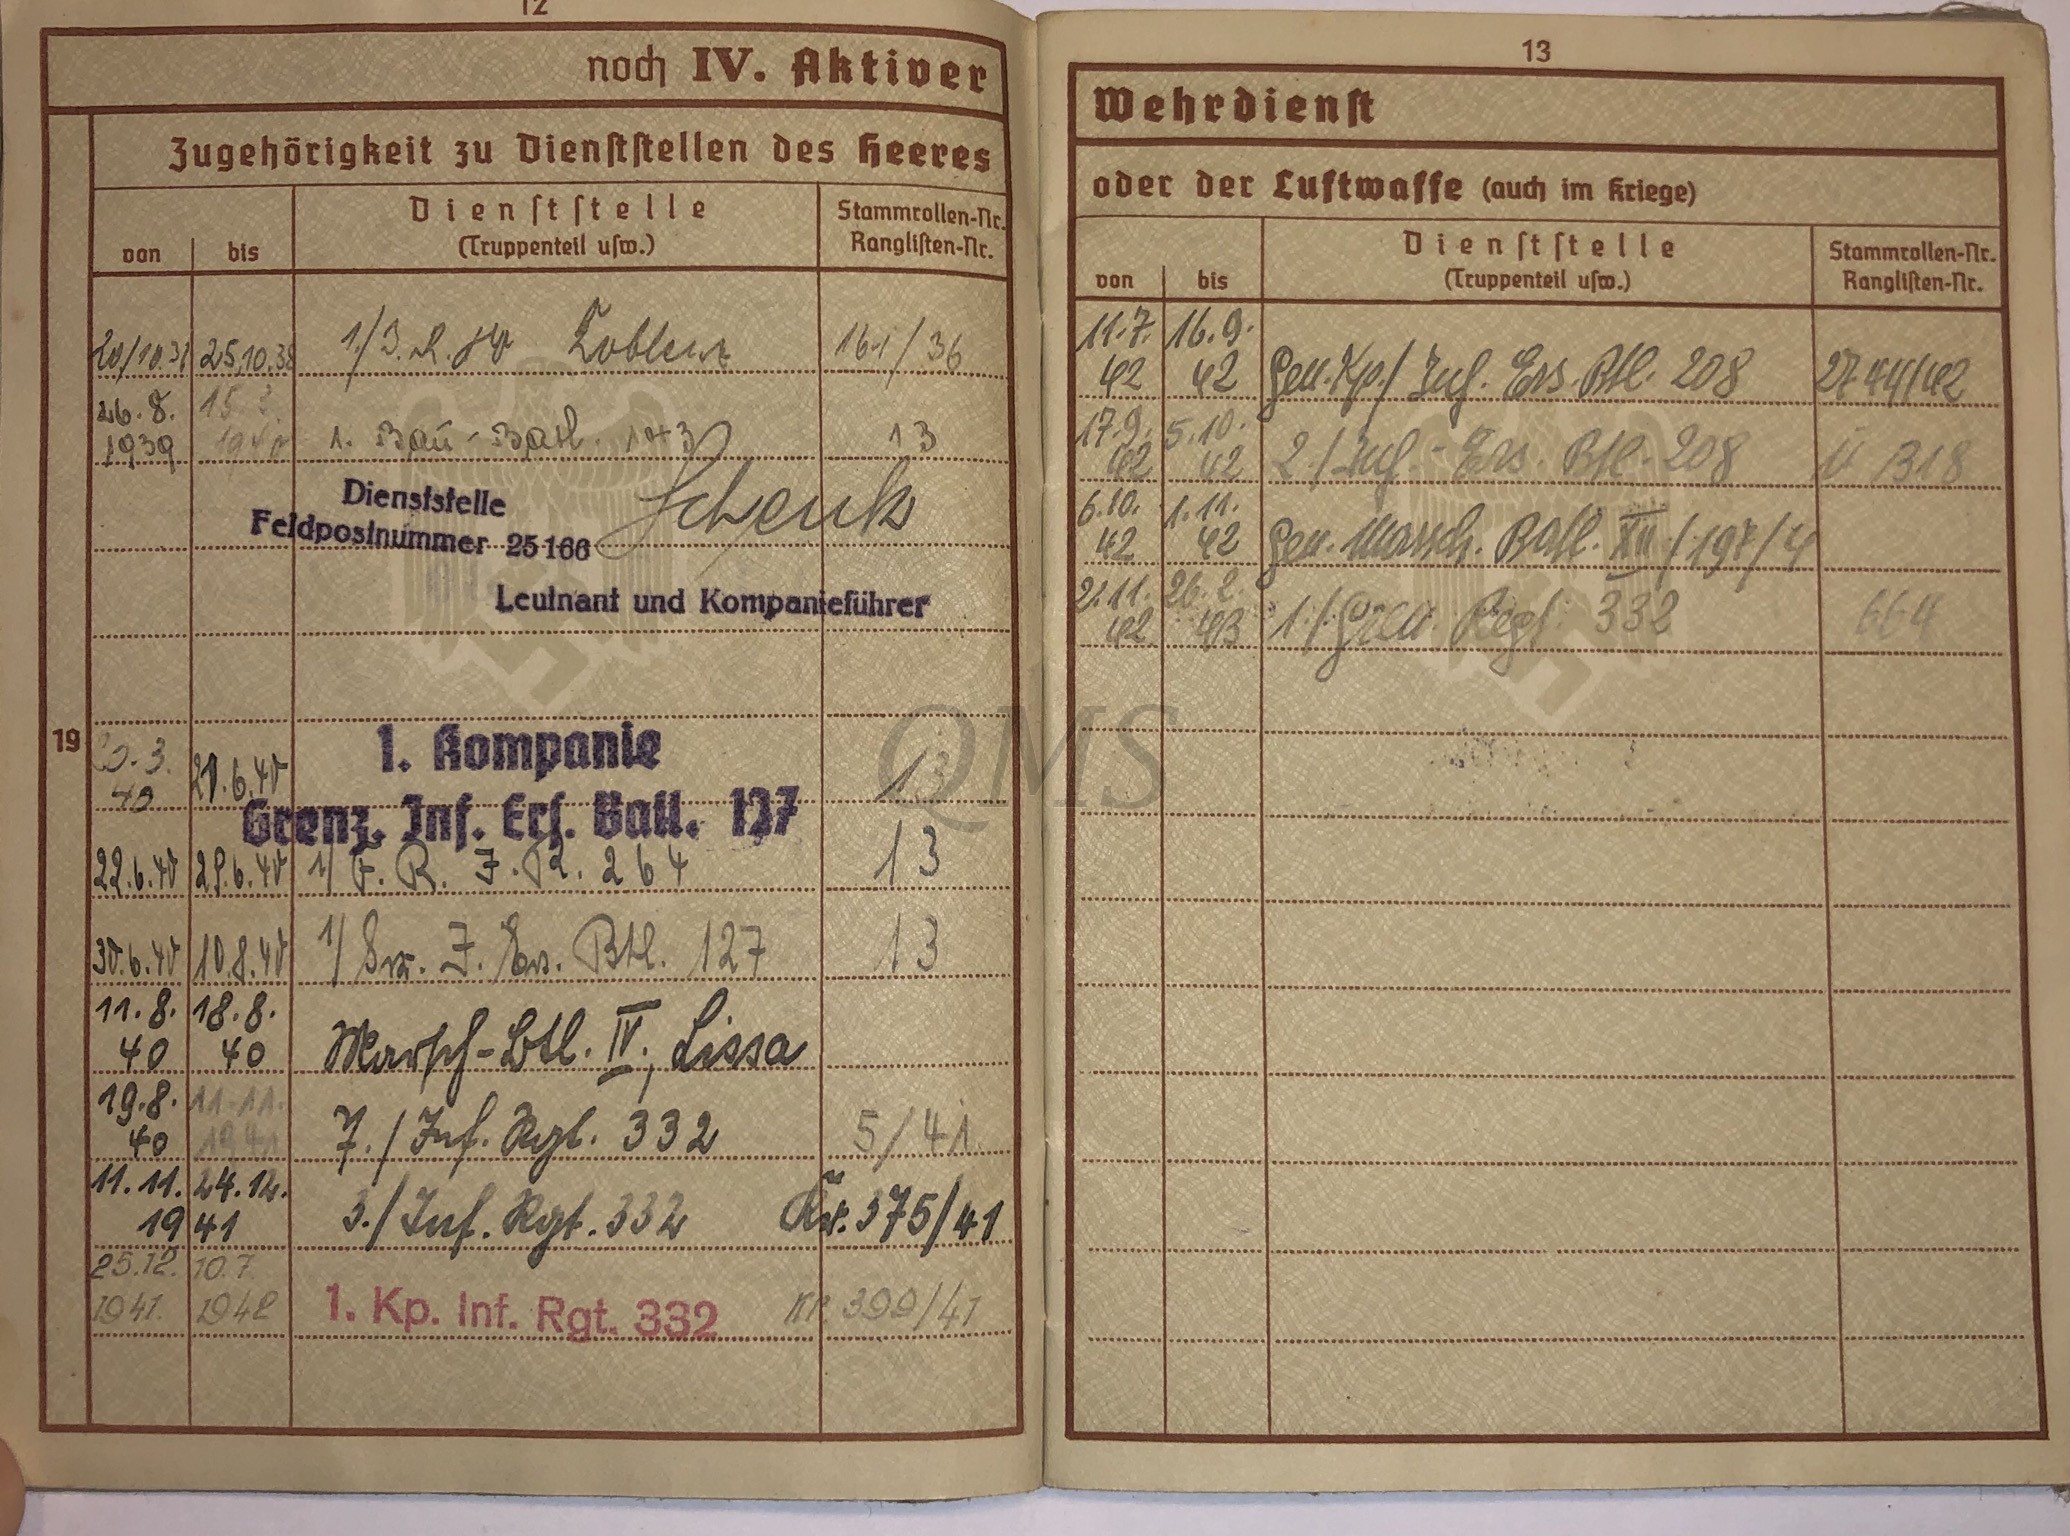 12
noch IV. Aktiver
Zugehörigkeit zu Dienststellen des Heeres
von bis Dienststelle (Truppenteil usw.) Stammrollen-Nr. Ranglisten-Nr.
25.10.38 161/36
26.8. 1939 1. Bau-Batl. 13
Dienststelle
Feldpostnummer 25166
Schenk
Leutnant und Kompanieführer
19
3. 40 21.6.40 1. Kompanie 13
Grenz. Inf. Ers. Batl. 127
22.6.40 29.6.40 1/ F. R. J. R. 264 13
30.6.40 10.8.40 1/ J. Ers. Btl. 127 13
11.8. 40 18.8. 40 Marsch-Btl. IV, Lissa
19.8. 40 11.11. 1941 7./Inf. Rgt. 332 5/41.
11.11. 24.12. 1941 3./Inf. Rgt. 332 Kr. 375/41
25.12. 1941. 10.7. 1942 1. Kp. Inf. Rgt. 332 Kr. 399/41
13
Wehrdienst
oder der Luftwaffe (auch im Kriege)
von bis Dienststelle (Truppenteil usw.) Stammrollen-Nr. Ranglisten-Nr.
11.7. 42 16.9. 42 Gen. Kp./ Inf. Ers. Btl. 208 2744/42
17.9. 42 5.10. 42 2./Inf.-Ers. Btl. 208 318
6.10. 42 1.11. 42 Gen. Marsch. Batl. XII/197/4
2.11. 42 26.2. 43 1./Gren. Regt. 332 664
QMS